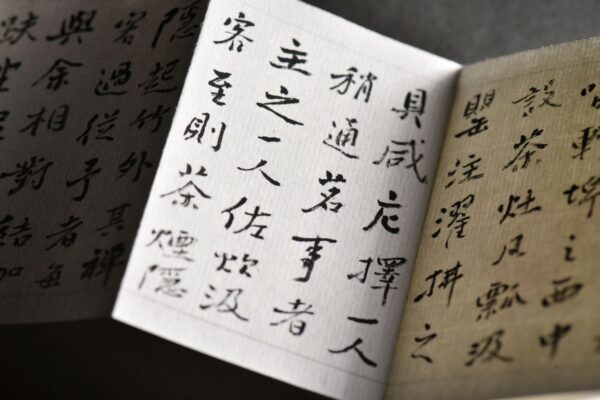 軒埤之西中
設茶灶凡瓢汲
罌注濯拂之
具咸庀擇一人
稍通茗事者
主之一人佐炊汲
客至則茶煙隱
隱起竹外其禪
客過從予者每
與余相對結加
趺坐